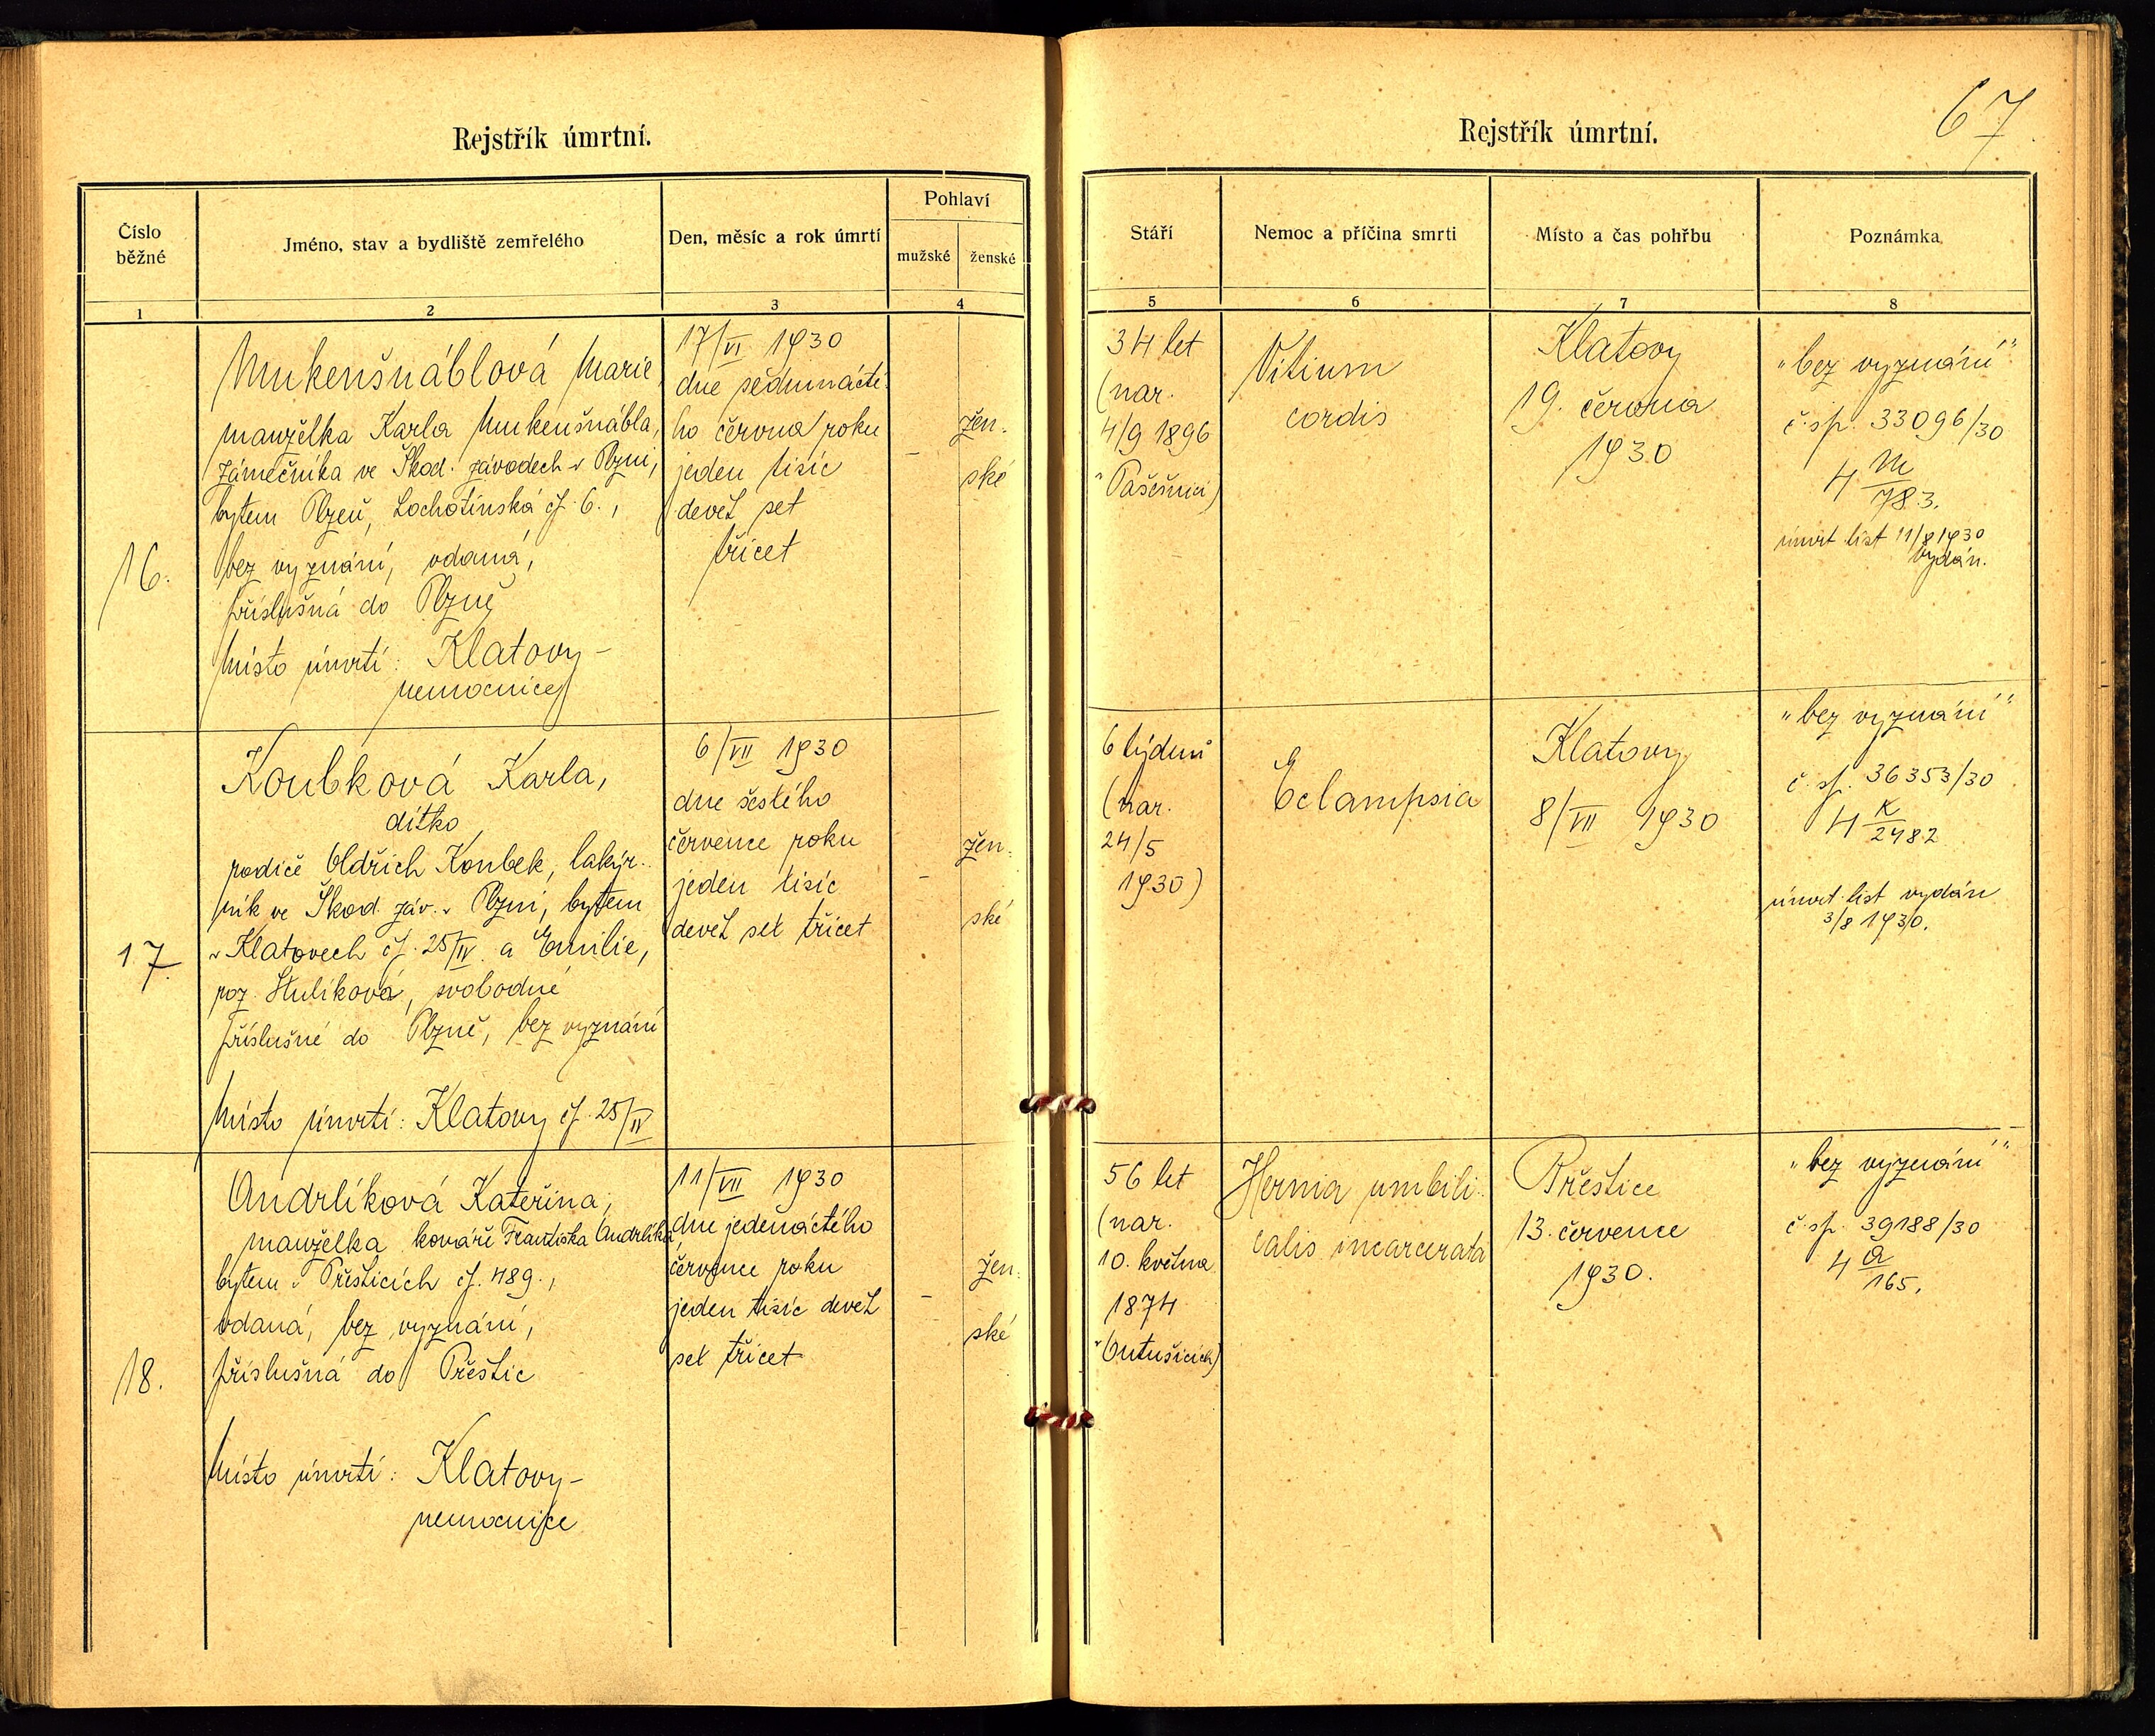 67
Rejstřík úmrtní.
Rejstřík úmrtní.
Číslo běžné
Jméno, stav a bydliště zemřelého
Den, měsíc a rok úmrtí
Pohlaví
mužské
ženské
Stáří
Nemoc a příčina smrti
Místo a čas pohřbu
Poznámka
1
2
3
4
5
6
7
8
16.
Mukenšnáblová Marie,
manželka Karla Mukenšnábla,
zámečníka ve Škod. závodech v Plzni,
bytem Plzeň, Lochotínská čj. 6.,
bez vyznání, vdaná,
příslušná do Plzně
Místo úmrtí: Klatovy-
nemocnice
17/VI 1930
dne sedmnácté-
ho června roku
jeden tisíc
devět set
třicet
-
žen-
ské
34 let
(nar.
4/9 1896
v
Vitium
cordis
Klatovy
19. června
1930
"bez vyznání"
č. sp. 33096/30
4 M/783.
úmrt. list 11/8 1930
vydán.
17.
Koubková Karla,
dítko
rodiče Oldřich Koubek, lakýr-
ník ve Škod. záv. v Plzni, bytem
v Klatovech čj. 25/IV. a Emilie,
roz. Hulíková, svobodné
příslušné do Plzně, bez vyznání
Místo úmrtí: Klatovy čj. 25/IV
6/VII 1930
dne šestého
července roku
jeden tisíc
devět set třicet
-
žen-
ské
6 týdnů
(nar.
24/5
1930)
Eclampsia
Klatovy
8/VII 1930
"bez vyznání"
č. sp. 36353/30
4 K/2482
úmrt. list vydán
3/8 1930.
18.
Andrlíková Kateřina,
manželka kováře Františka Andrlíka,
bytem v Přešticích čj. 489.,
vdaná, bez vyznání,
příslušná do Přeštic
Místo úmrtí: Klatovy-
nemocnice
11/VII 1930
dne jedenáctého
července roku
jeden tisíc devět
set třicet
-
žen-
ské
56 let
(nar.
10. května
1874
v
Hernia umbili-
calis incarcerata
Přeštice
13. července
1930.
"bez vyznání"
č. sp. 39188/30
4 A/165.